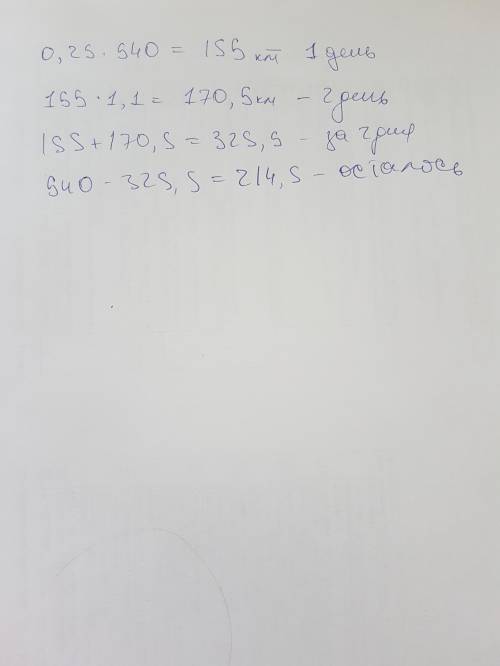 0,25 · 540 = 155 км 1 день
155 · 1,1 = 170,5 км - 2 день
155 + 170,5 = 325,5 - за 2 дня
540 - 325,5 = 214,5 - осталось